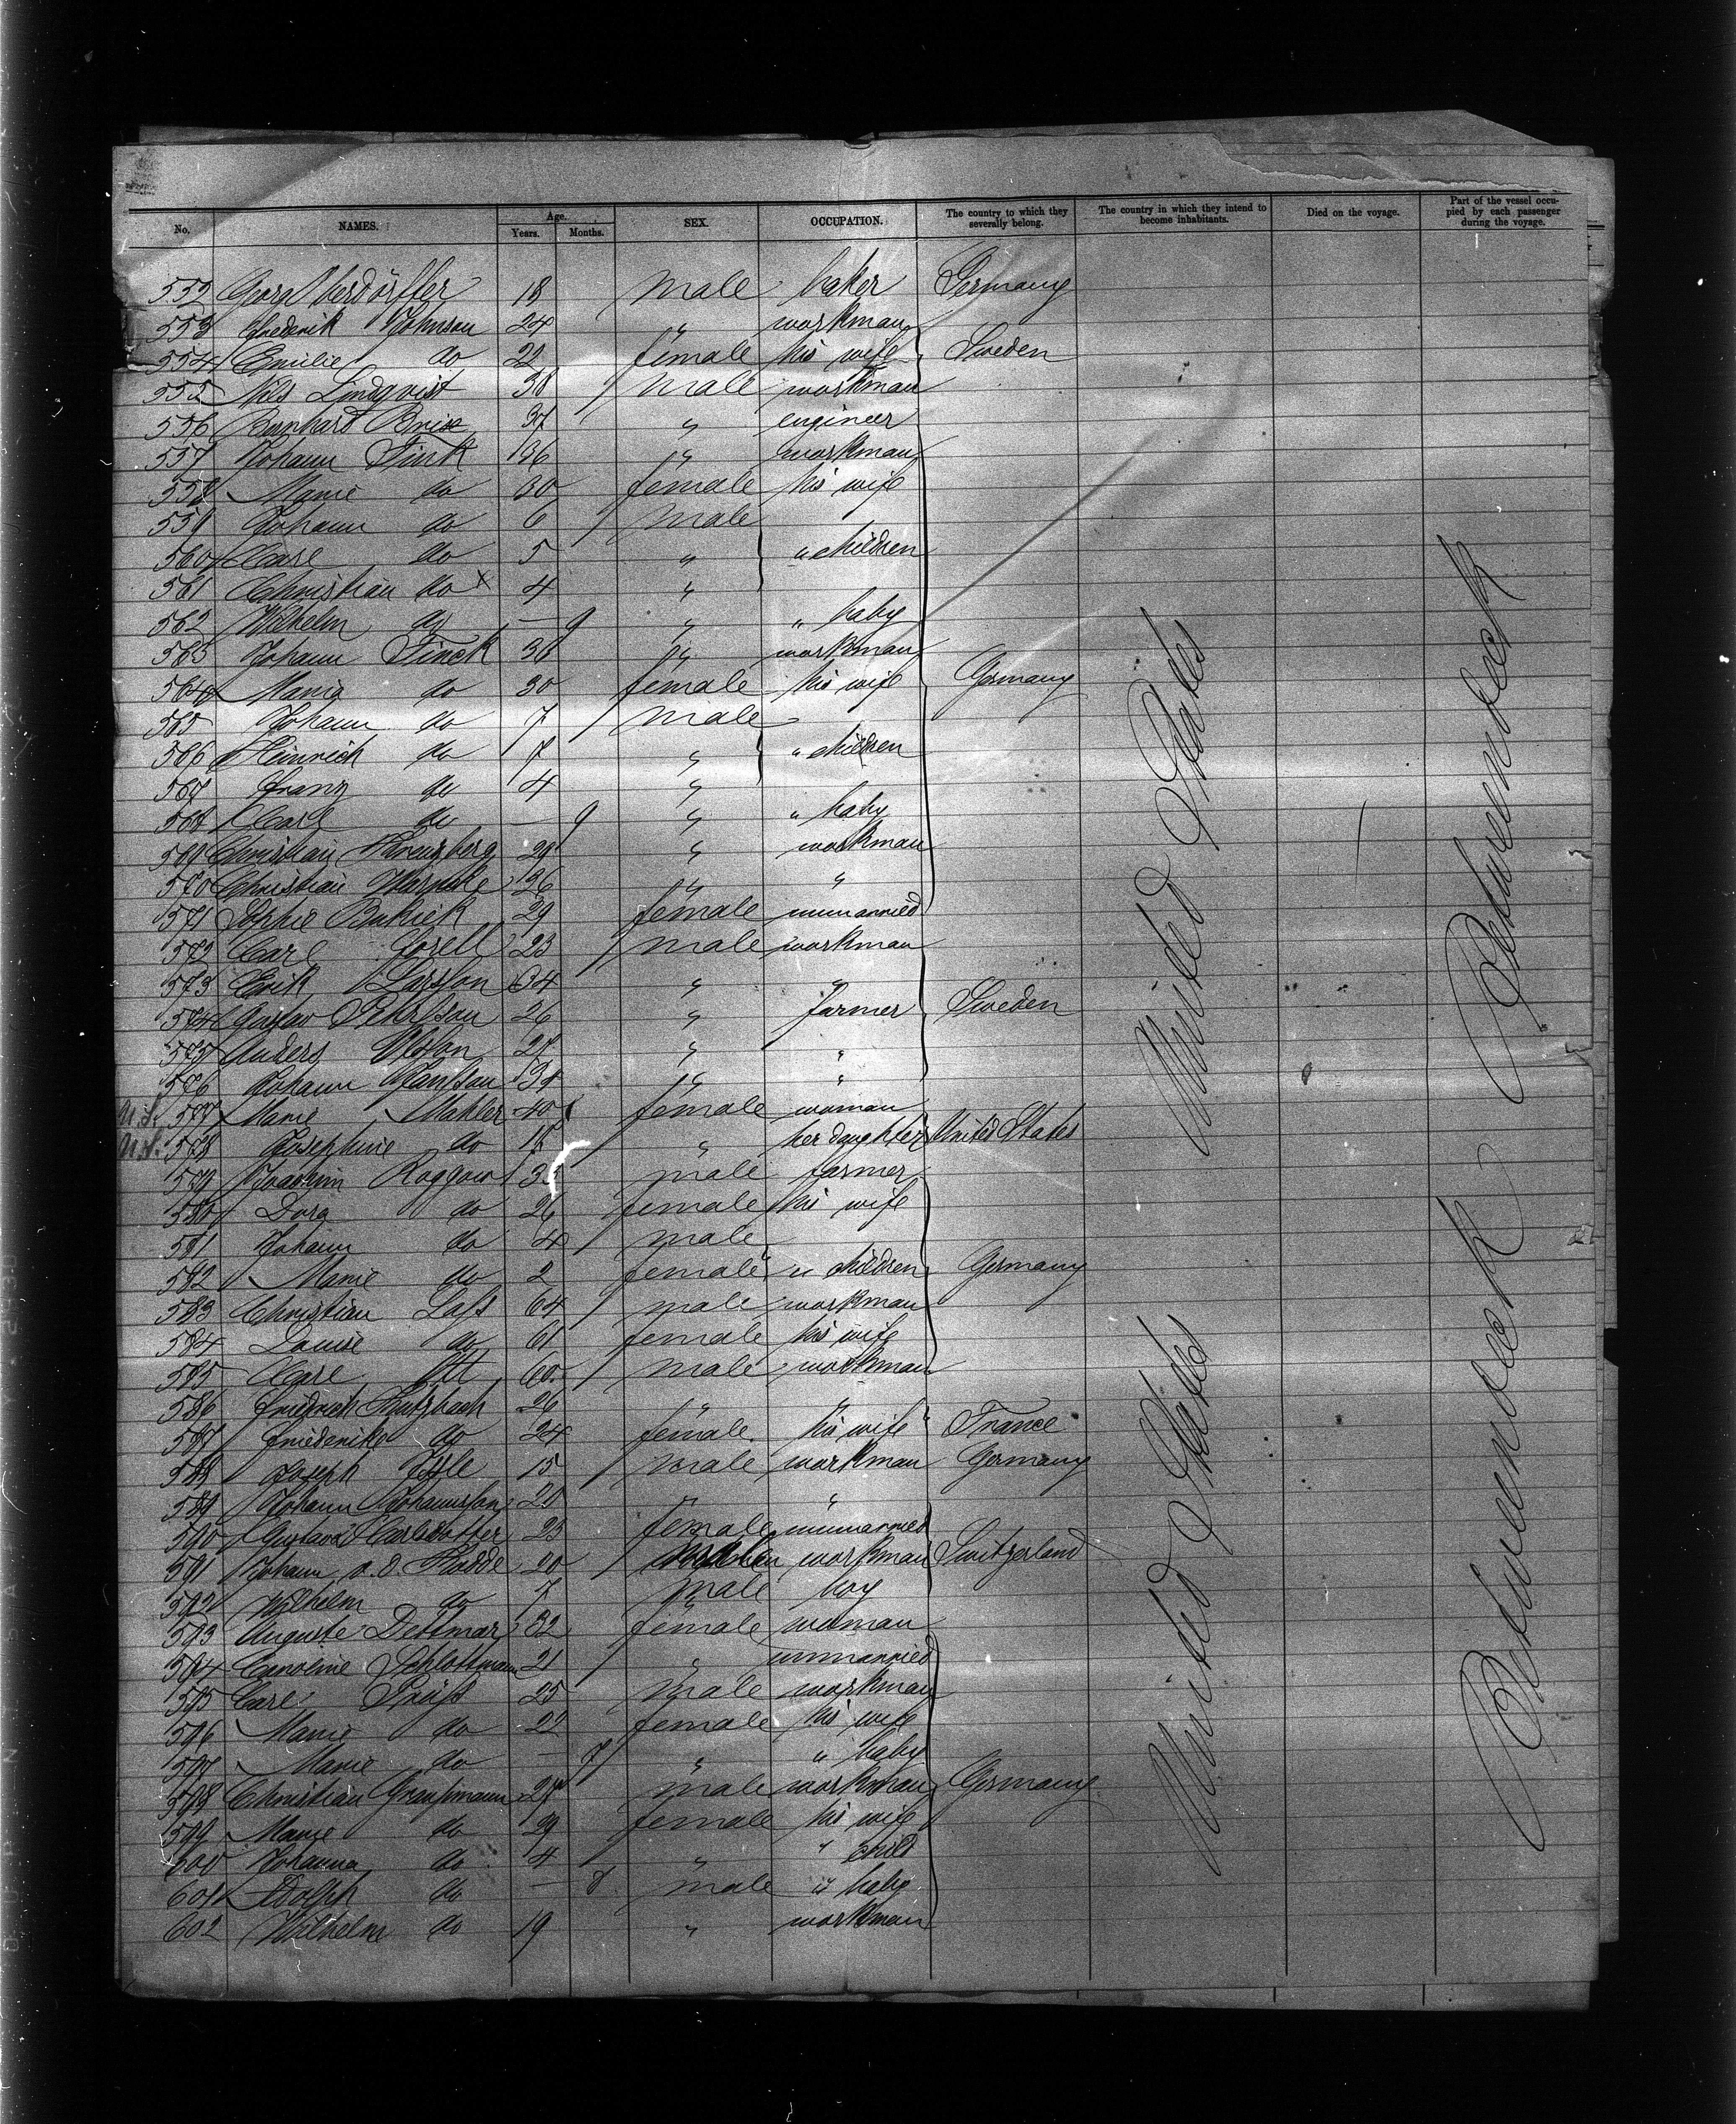 No. NAMES. Age. Years. Months. SEX. OCCUPATION. The country to which they severally belong. The country in which they intend to become inhabitants. Died on the voyage. Part of the vessel occupied by each passenger during the voyage.
552 Georg 18 male baker Germany
553 Frederik Johnson 24 " workman
554 Emilie do 22 female his wife Sweden
555 Nils Lindqvist 38 male workman
556 Bernhard 37 " engineer
557 Johann Fink 36 " workman
558 Marie do 30 female his wife
559 Johann do 6 male
560 Carl do 5 " " children
561 Christian do x 4 "
562 Wilhelm do — 9 " " baby
563 Johann Finck 36 " workman
564 Maria do 30 female his wife Germany
565 Johann do 7 male
566 Heinrich do 7 " " children
567 Franz do 4 "
568 Carl do — 9 " " baby
569 Christian 29 " workman
570 Christian 26 " "
571 Sophie 29 female unmarried
572 Carl 23 male workman
573 Erik Larsson 34 " "
574 Gustav Pehrsson 26 " farmer Sweden
575 Anders Olson 27 " "
576 Johann 34 " "
U.S. 577 Marie Mahler 40 female woman
U.S. 578 Josephine do her daughter United States
579 Joachim Roggow 35 male farmer
580 Dora do 26 female his wife
581 Johann do 4 male
582 Marie do 2 female " children Germany
583 Christian Lass 64 male workman
584 Louise do 61 female his wife
585 Carl Ott 60 male workman
586 Friedrich 26 " "
587 Friederike do 24 female his wife France
588 Joseph 15 male workman Germany
589 Johann Johannsson " "
590 Gustava Carlsdotter 23 female unmarried
591 Johann v. d. 20 workman Switzerland
592 Wilhelm do 7 male boy
593 Auguste Dettmar 32 female woman
594 Caroline Schlottmann 21 " unmarried
595 Carl Prüss 25 male workman
596 Marie do 22 female his wife
597 Marie do — 7 " " baby
598 Christian 27 male workman Germany
599 Marie do 29 female his wife
600 Johanna do 4 " " child
601 Adolph do — 8 male " baby
602 Wilhelm do 19 " workman
United States
United States
Betweendeck
Betweendeck